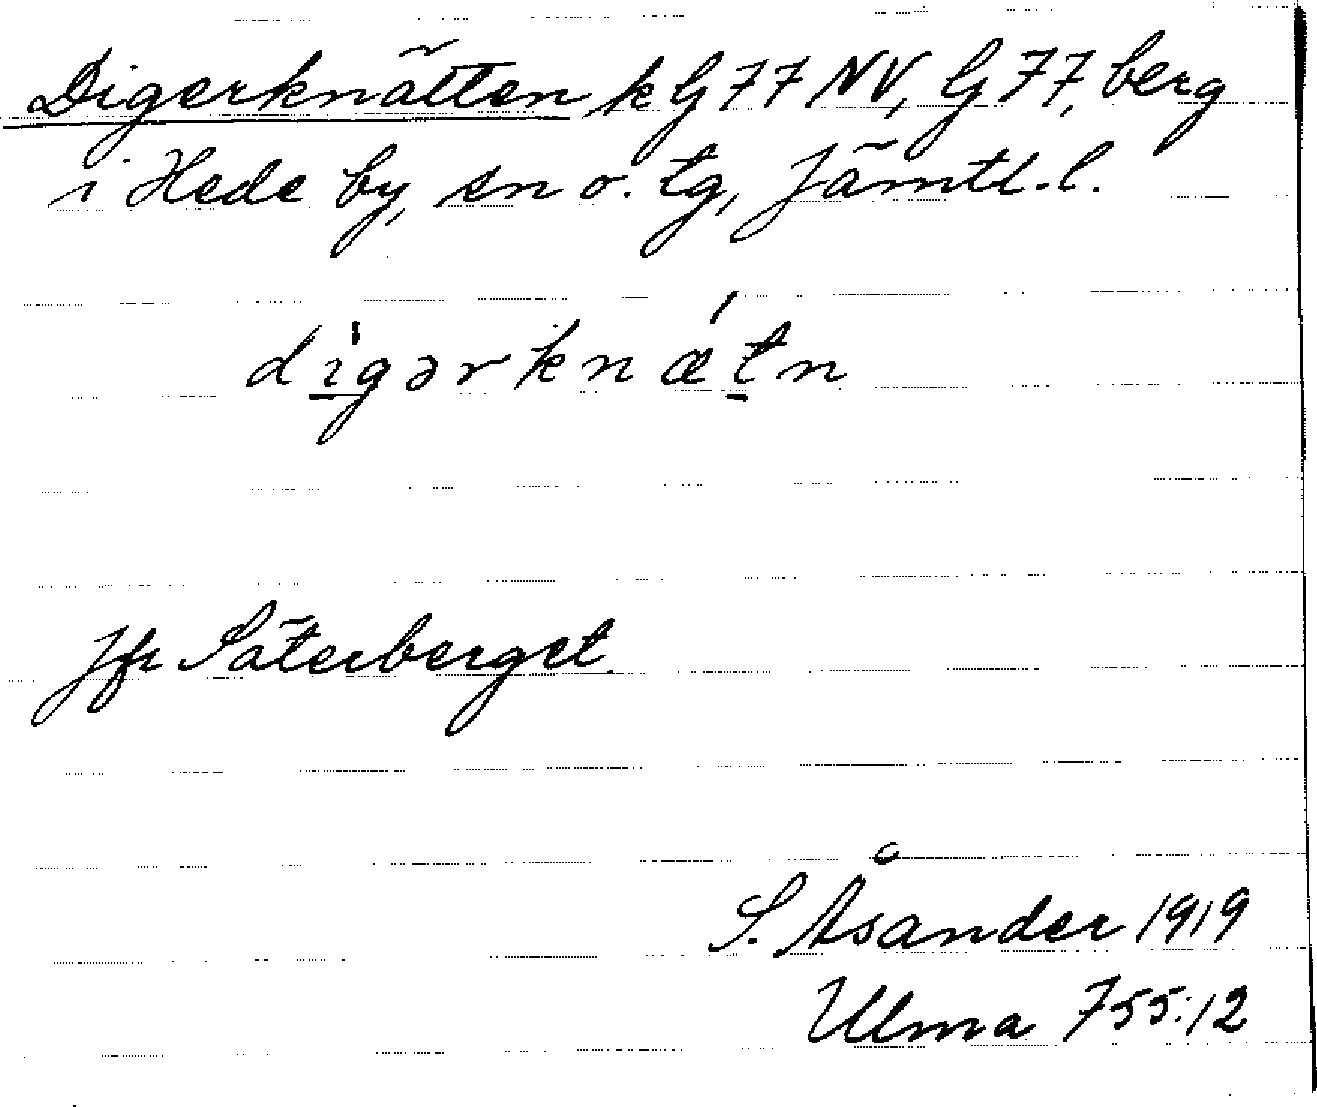 Digerknätten k G 77 NV, G 77, berg
i Hede by, sn o. tg, Jämtl. l.
dìgərknǽtn
Jfr Säterberget.
S. Åsander 1919
Ulma 755:12